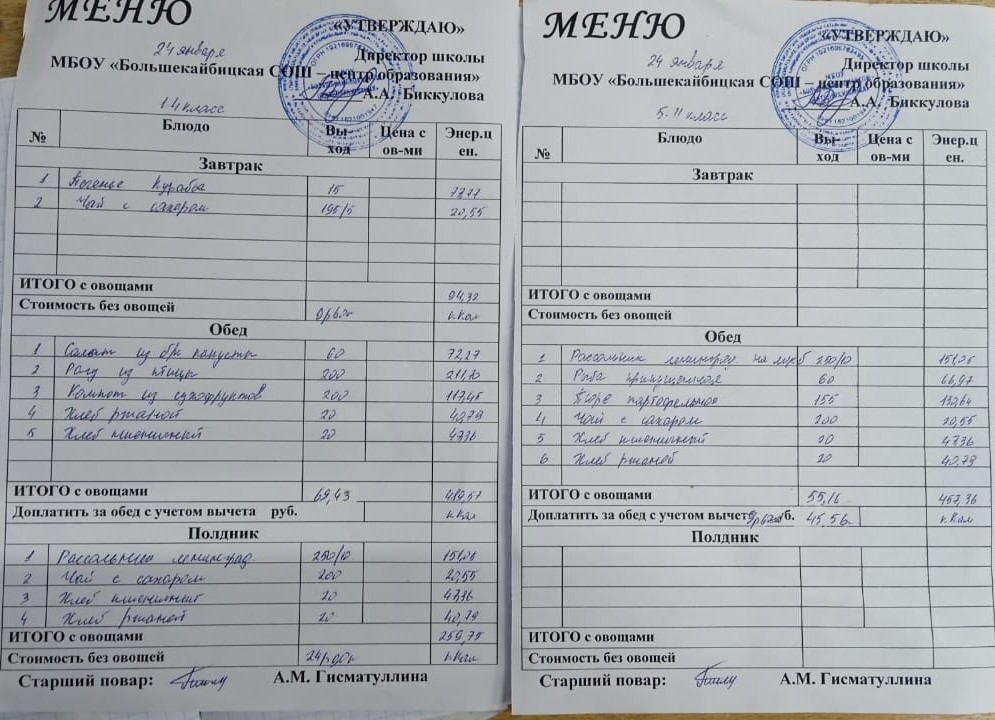 МЕНЮ
«УТВЕРЖДАЮ»
24 января
Директор школы
МБОУ «Большекайбицкая СОШ – центр образования»
А.А. Биккулова
1-4 класс
№ Блюдо Вы-ход Цена с ов-ми Энер.ц ен.
Завтрак
1 Печенье Курабье 15 73,77
2 Чай с сахаром 195/5 20,55
ИТОГО с овощами 94,32
Стоимость без овощей 9р62к ккал
Обед
1 Салат из бк капусты 60 72,27
2 Рагу из птицы 200
3 Компот из сухофруктов 200 117,45
4 Хлеб ржаной 20 40,79
5 Хлеб пшеничный 20 47,36
ИТОГО с овощами 69,43 489,57
Доплатить за обед с учетом вычета руб. ккал
Полдник
1 Рассольник ленинград 250/10 151,05
2 Чай с сахаром 200 20,55
3 Хлеб пшеничный 20 47,36
4 Хлеб ржаной 20 40,79
ИТОГО с овощами 259,75
Стоимость без овощей ккал
Старший повар: А.М. Гисматуллина
МЕНЮ
«УТВЕРЖДАЮ»
24 января
Директор школы
МБОУ «Большекайбицкая СОШ – центр образования»
А.А. Биккулова
5-11 класс
№ Блюдо Вы-ход Цена с ов-ми Энер.ц ен.
Завтрак
ИТОГО с овощами
Стоимость без овощей
Обед
1 Рассольник ленинград. на м/кб 250/10 151,05
2 Рыба припущенная 60 66,97
3 Пюре картофельное 155 132,64
4 Чай с сахаром 200 20,55
5 Хлеб пшеничный 20 47,36
6 Хлеб ржаной 20 40,79
ИТОГО с овощами 55,16 457,36
Доплатить за обед с учетом вычета руб. 45,56 ккал
Полдник
ИТОГО с овощами
Стоимость без овощей
Старший повар: А.М. Гисматуллина